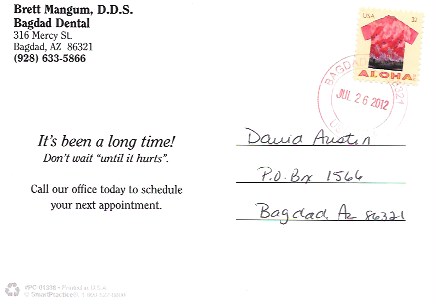 Brett Mangum, D.D.S.
Bagdad Dental
316 Mercy St.
Bagdad, AZ 86321
(928) 633-5866
USA
ALOHA
BAGDAD
86321
JUL 26 2012
It's been a long time!
Don't wait "until it hurts".
Call our office today to schedule
your next appointment.
David Austin
P.O. Box 1566
Bagdad, Az 86321
Printed in U.S.A.